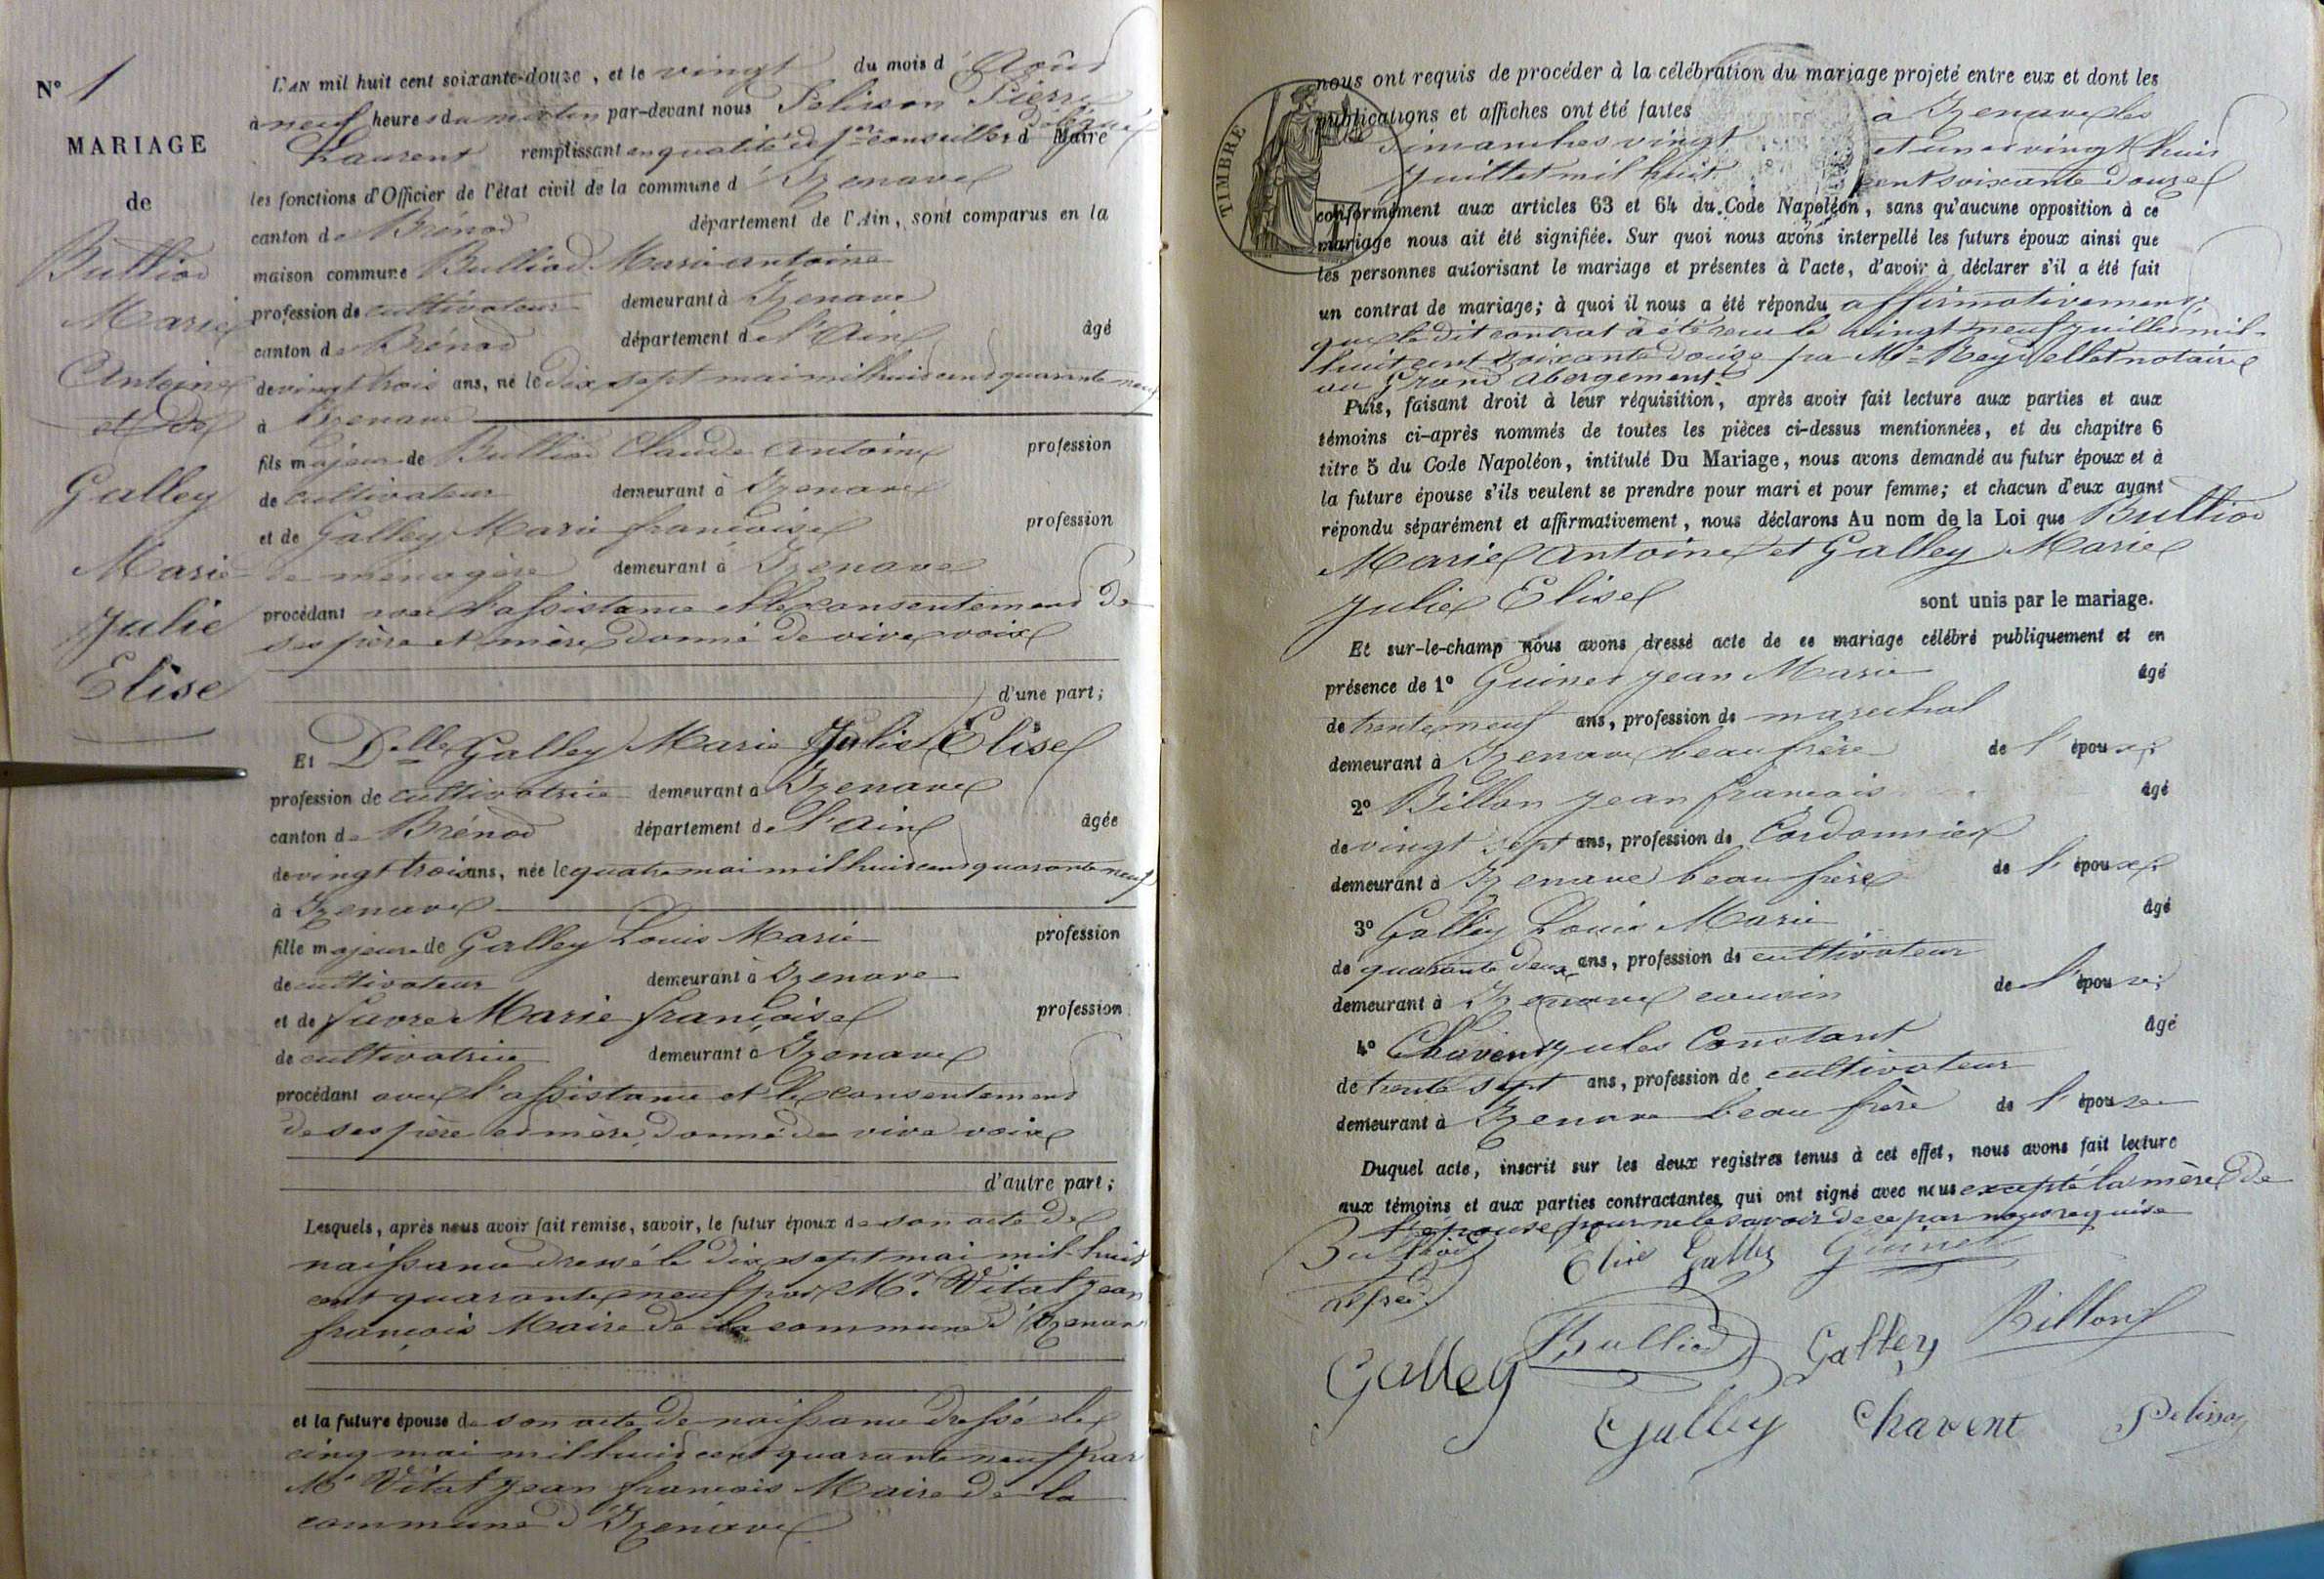 N° 1
MARIAGE
de
Bulliod
Marie
Antoine
et de
Galley
Marie
Julie
Elise
L'AN mil huit cent soixante-douze, et le vingt du mois d'Août
à neuf heures du matin par-devant nous Pelisson Pierre
Laurent remplissant en qualité de 1er conseiller délégué d Maire
les fonctions d'Officier de l'état civil de la commune d'Izenave
canton de Brénod département de l'Ain, sont comparus en la
maison commune Bulliod Marie antoine
profession de cultivateur demeurant à Izenave
canton de Brénod département de l'Ain âgé
de vingt trois ans, né le dix sept mai mil huit cent quarante neuf
à Izenave
fils majeur de Bulliod Claude antoine profession
de cultivateur demeurant à Izenave
et de Galley Marie françoise profession
de ménagère demeurant à Izenave
procédant avec l'assistance et le consentement de
ses père et mère donné de vive voix
d'une part;
Et Delle Galley Marie Julie Elise
profession de cultivatrice demeurant à Izenave
canton de Brénod département de l'Ain âgée
de vingt trois ans, née le quatre mai mil huit cent quarante neuf
à Izenave
fille majeure de Galley Louis Marie profession
de cultivateur demeurant à Izenave
et de favre Marie françoise profession
de cultivatrice demeurant à Izenave
procédant avec l'assistance et le consentement
de ses père et mère, donné de vive voix
d'autre part;
Lesquels, après nous avoir fait remise, savoir, le futur époux de son acte de
naissance dressé le dix sept mai mil huit
cent quarante neuf par Mr. Vitat Jean
françois Maire de la commune d'Izenave
et la future épouse de son acte de naissance dressé le
cinq mai mil huit cent quarante neuf par
Mr Vitat Jean françois Maire de la
commune d'Izenave
nous ont requis de procéder à la célébration du mariage projeté entre eux et dont les
publications et affiches ont été faites à Izenave les
dimanches vingt et un et vingt huit
Juillet mil huit cent soixante douze
conformément aux articles 63 et 64 du Code Napoléon, sans qu'aucune opposition à ce
mariage nous ait été signifiée. Sur quoi nous avons interpellé les futurs époux ainsi que
les personnes autorisant le mariage et présentes à l'acte, d'avoir à déclarer s'il a été fait
un contrat de mariage; à quoi il nous a été répondu affirmativement,
que le dit contrat a été reçu le vingt neuf juillet mil
huit cent soixante douze par Mre Reydellet notaire
au Grand Abergement.
Puis, faisant droit à leur réquisition, après avoir fait lecture aux parties et aux
témoins ci-après nommés de toutes les pièces ci-dessus mentionnées, et du chapitre 6
titre 5 du Code Napoléon, intitulé Du Mariage, nous avons demandé au futur époux et à
la future épouse s'ils veulent se prendre pour mari et pour femme; et chacun d'eux ayant
répondu séparément et affirmativement, nous déclarons Au nom de la Loi que Bulliod
Marie antoine et Galley Marie
Julie Elise sont unis par le mariage.
Et sur-le-champ nous avons dressé acte de ce mariage célébré publiquement et en
présence de 1° Guinet Jean Marie âgé
de trente neuf ans, profession de marechal
demeurant à Izenave beau frère de l'époux;
2° Billon Jean francois âgé
de vingt sept ans, profession de Cordonnier
demeurant à Izenave beau frère de l'époux;
3° Galley Louis Marie âgé
de quarante deux ans, profession de cultivateur
demeurant à Izenave cousin de l'épouse;
4° Chavent Jules Constant âgé
de trente sept ans, profession de cultivateur
demeurant à Izenave beau frère de l'épouse
Duquel acte, inscrit sur les deux registres tenus à cet effet, nous avons fait lecture
aux témoins et aux parties contractantes qui ont signé avec nous excepté la mère de
l'épouse pour ne le savoir de ce par nous requise
Bulliod Elise Galley Guinet
Galley Bulliod Galley Billon
Galley Chavent Pelisson
TIMBRE